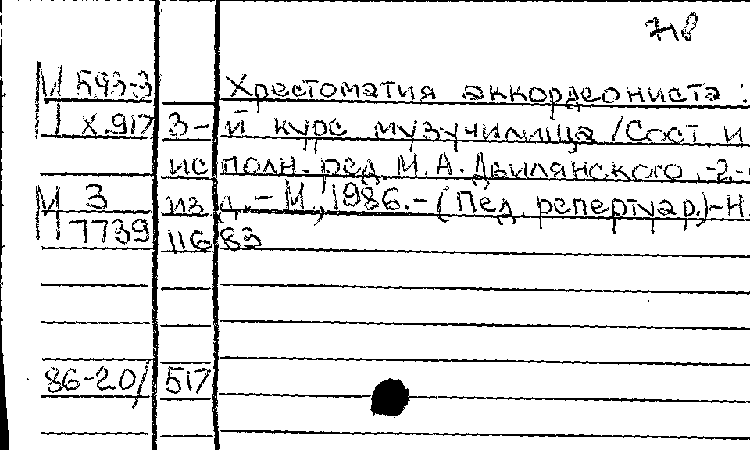 718
М 593-3 Хрестоматия аккордеониста :
Х.917 3-й курс музучилища /Сост и
исполн. ред. М.А.Двилянского .-2-
М 3 изд.-М.,1986.-(Пед. репертуар.)-Н.
7739 11683
86-20/517